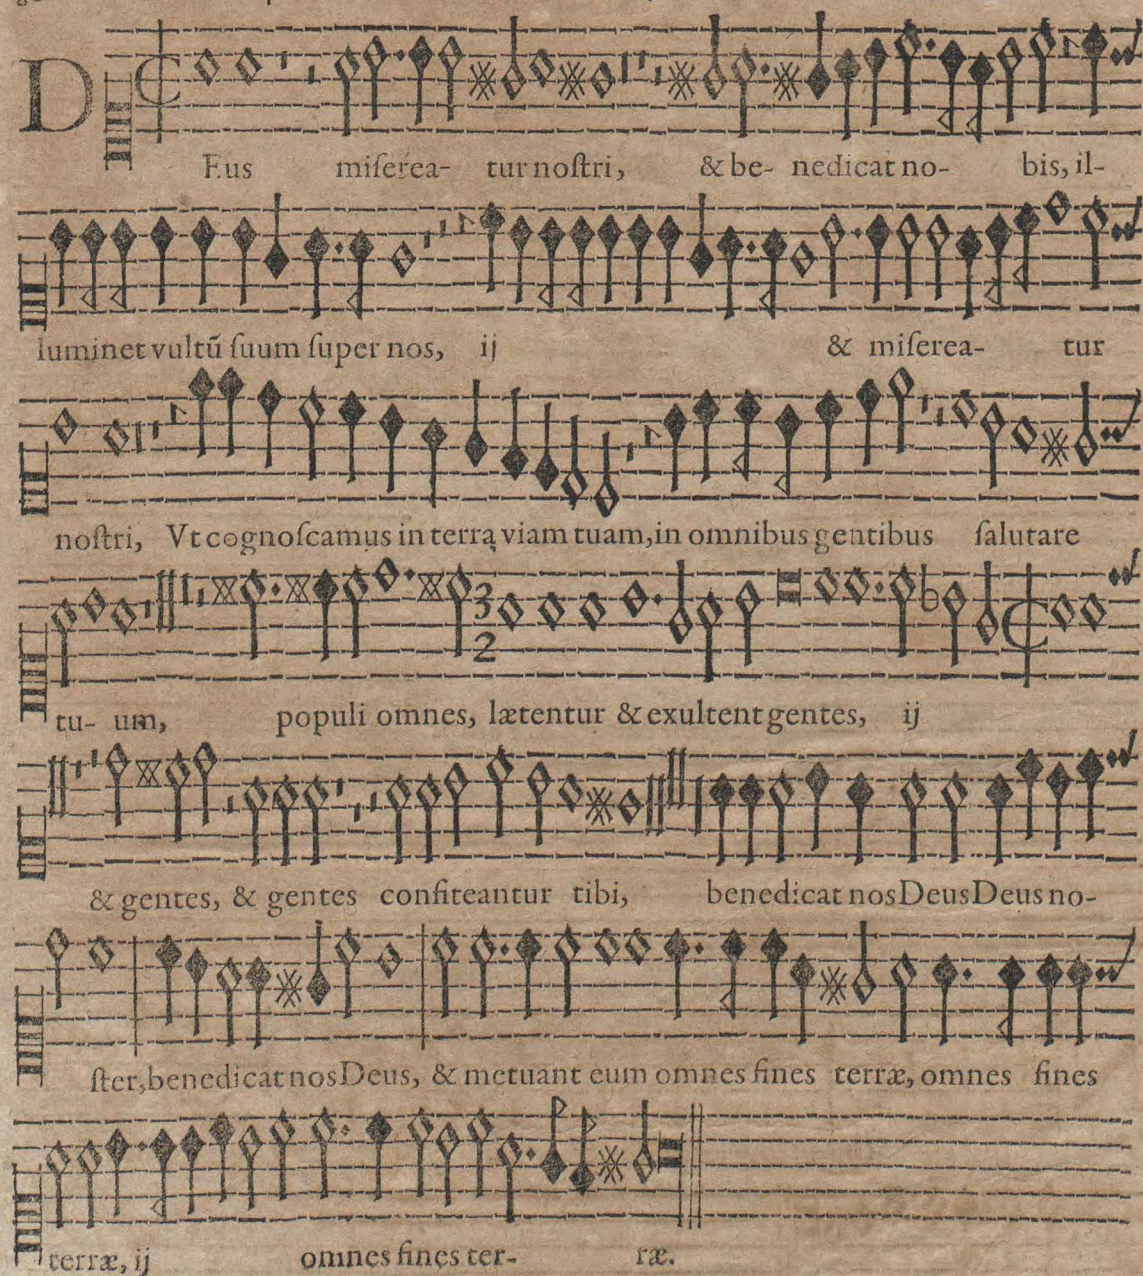 DEus miſerea- tur noſtri, & be- nedicat no- bis, il-
luminet vultũ ſuum ſuper nos, ij & miſerea- tur
noſtri, Vt cognoſcamus in terra viam tuam, in omnibus gentibus ſalutare
tu- um, populi omnes, lætentur & exultent gentes, ij
& gentes, & gentes confiteantur tibi, benedicat nos Deus Deus no-
ſter, benedicat nos Deus, & metuant eum omnes fines terræ, omnes fines
terræ, ij omnes fines ter- ræ.